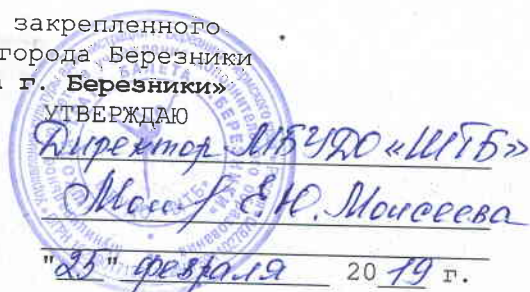 закрепленного
города Березники
г. Березники»
УТВЕРЖДАЮ
Директор МБУДО «ШТБ»
Е.Ю. Моисеева
"25" февраля 2019 г.